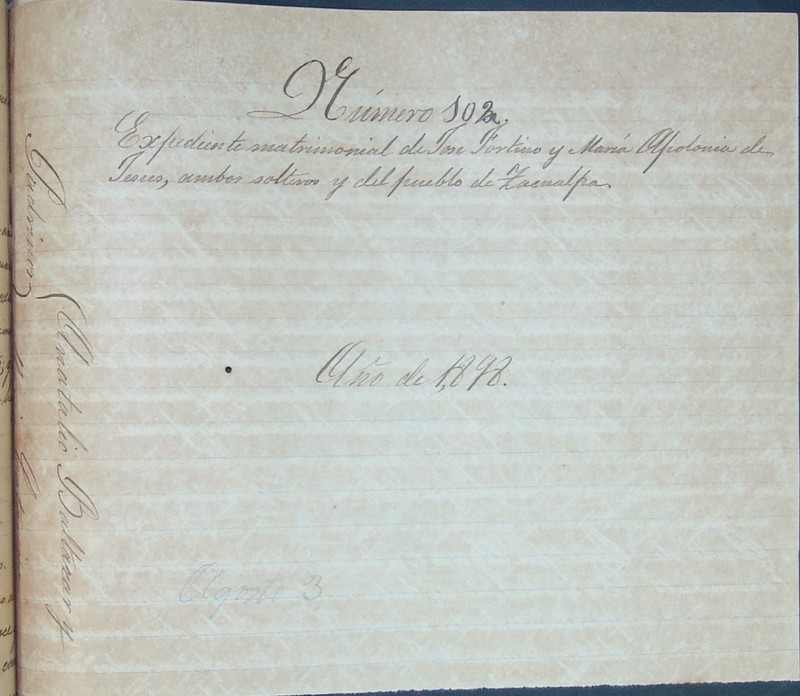 Número 102.
Expediente matrimonial de Jose Fortino y María Apolonia de
Jesus, ambos solteros y del pueblo de Zacualpa.
Año de 1,898.
Agosto 3
Padrinos
Anatalio Baltazar y